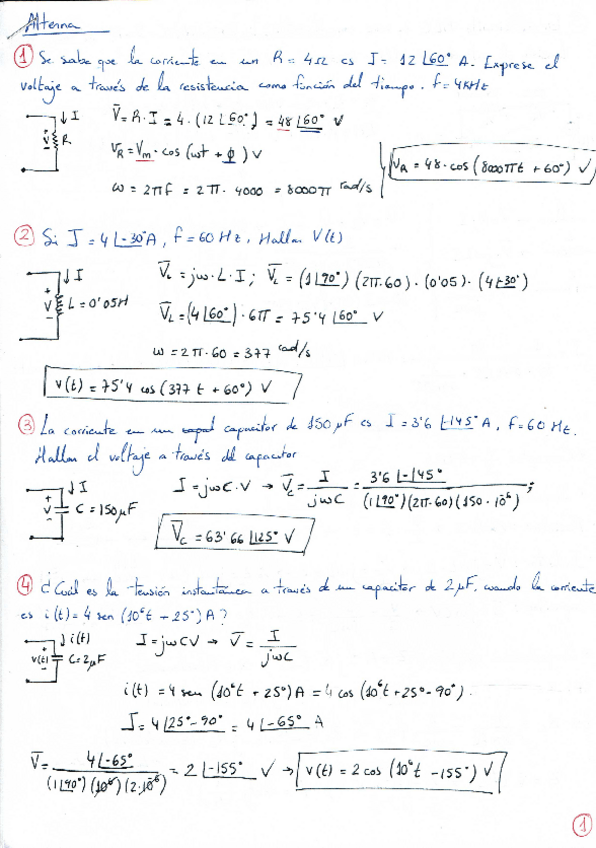 Alterna
① Se sabe que la corriente en un R = 4Ω es I = 12 ∠60° A. Exprese el
voltaje a través de la resistencia como función del tiempo. f = 4KHz
↓ I
+
V
-
R
V̄ = R·I = 4·(12 ∠60°) = 48 ∠60° V
V_R = V_m · cos (ωt + ϕ) V
V_R = 48·cos (8000πt + 60°) V
ω = 2πf = 2π·4000 = 8000π rad/s
② Si I = 4 ∠-30° A, f = 60 Hz, Hallar V(t)
↓ I
+
V
-
L = 0'05H
V̄_L = jω·L·I ; V̄_L = (1 ∠90°) (2π·60)·(0'05)·(4 ∠-30°)
V̄_L = (4 ∠60°)·6π = 75'4 ∠60° V
ω = 2π·60 = 377 rad/s
v(t) = 75'4 cos (377 t + 60°) V
③ La corriente en un capacitor de 150 μF es I = 3'6 ∠-145° A, f = 60 Hz.
Hallar el voltaje a través del capacitor
↓ I
+
V
-
C = 150μF
I = jωC·V → V̄_C = I / jωC = 3'6 ∠-145° / (1 ∠90°)(2π·60)(150·10⁻⁶) ;
V̄_C = 63'66 ∠125° V
④ ¿Cuál es la tensión instantánea a través de un capacitor de 2μF, cuando la corriente
es i(t) = 4 sen (10⁶t + 25°) A?
↓ i(t)
+
v(t)
-
C = 2μF
I = jωCV → V̄ = I / jωC
i(t) = 4 sen (10⁶t + 25°) A = 4 cos (10⁶t + 25° - 90°)
I = 4 ∠25° - 90° = 4 ∠-65° A
V̄ = 4 ∠-65° / (1 ∠90°) (10⁶) (2·10⁻⁶) = 2 ∠-155° V → v(t) = 2 cos (10⁶t - 155°) V
①